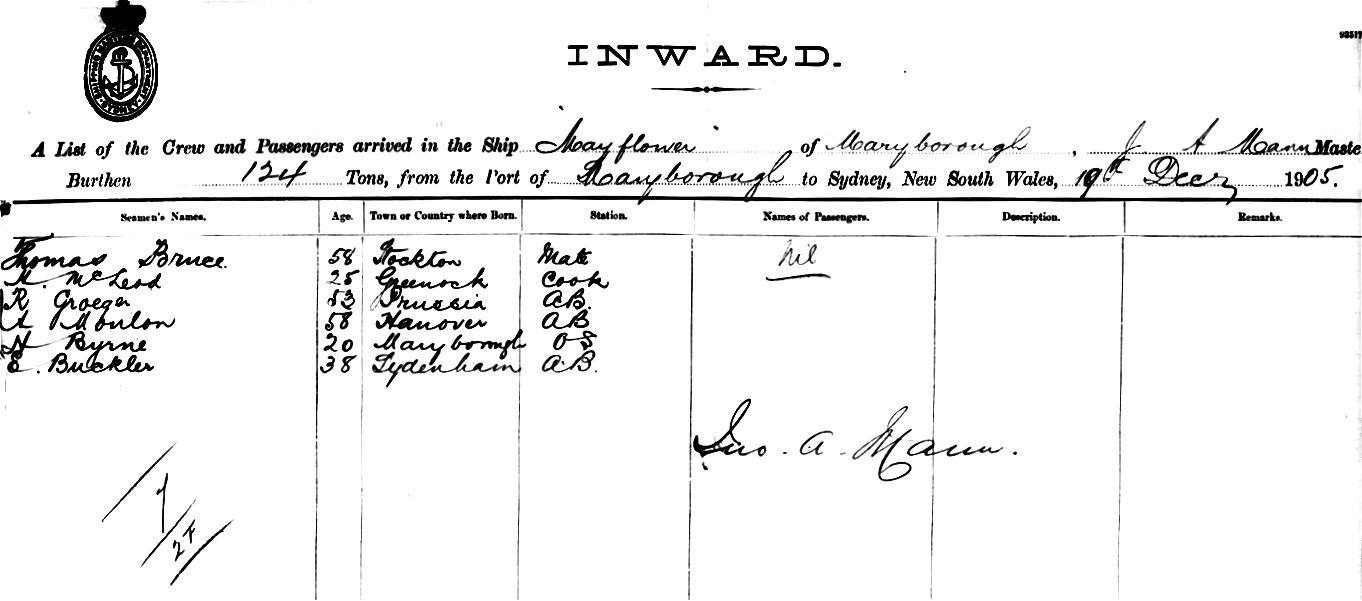 SHIPPING MASTER'S DEPARTMENT SYDNEY
93517
INWARD.
A List of the Crew and Passengers arrived in the Ship "Mayflower" of Maryborough, J A Mann Maste
Burthen 124 Tons, from the Port of Maryborough to Sydney, New South Wales, 19th Decr 1905.
Seamen's Names. Age. Town or Country where Born. Station. Names of Passengers. Description. Remarks.
Thomas Bruce. 58 Stockton Mate nil
McLeod 25 Greenock Cook
R Groeger 53 Prussia A.B.
A Moulon 58 Hanover AB
H Byrne 20 Maryborough OS
E. Buckler 38 Sydenham A.B.
Jno. A. Mann.
7
27